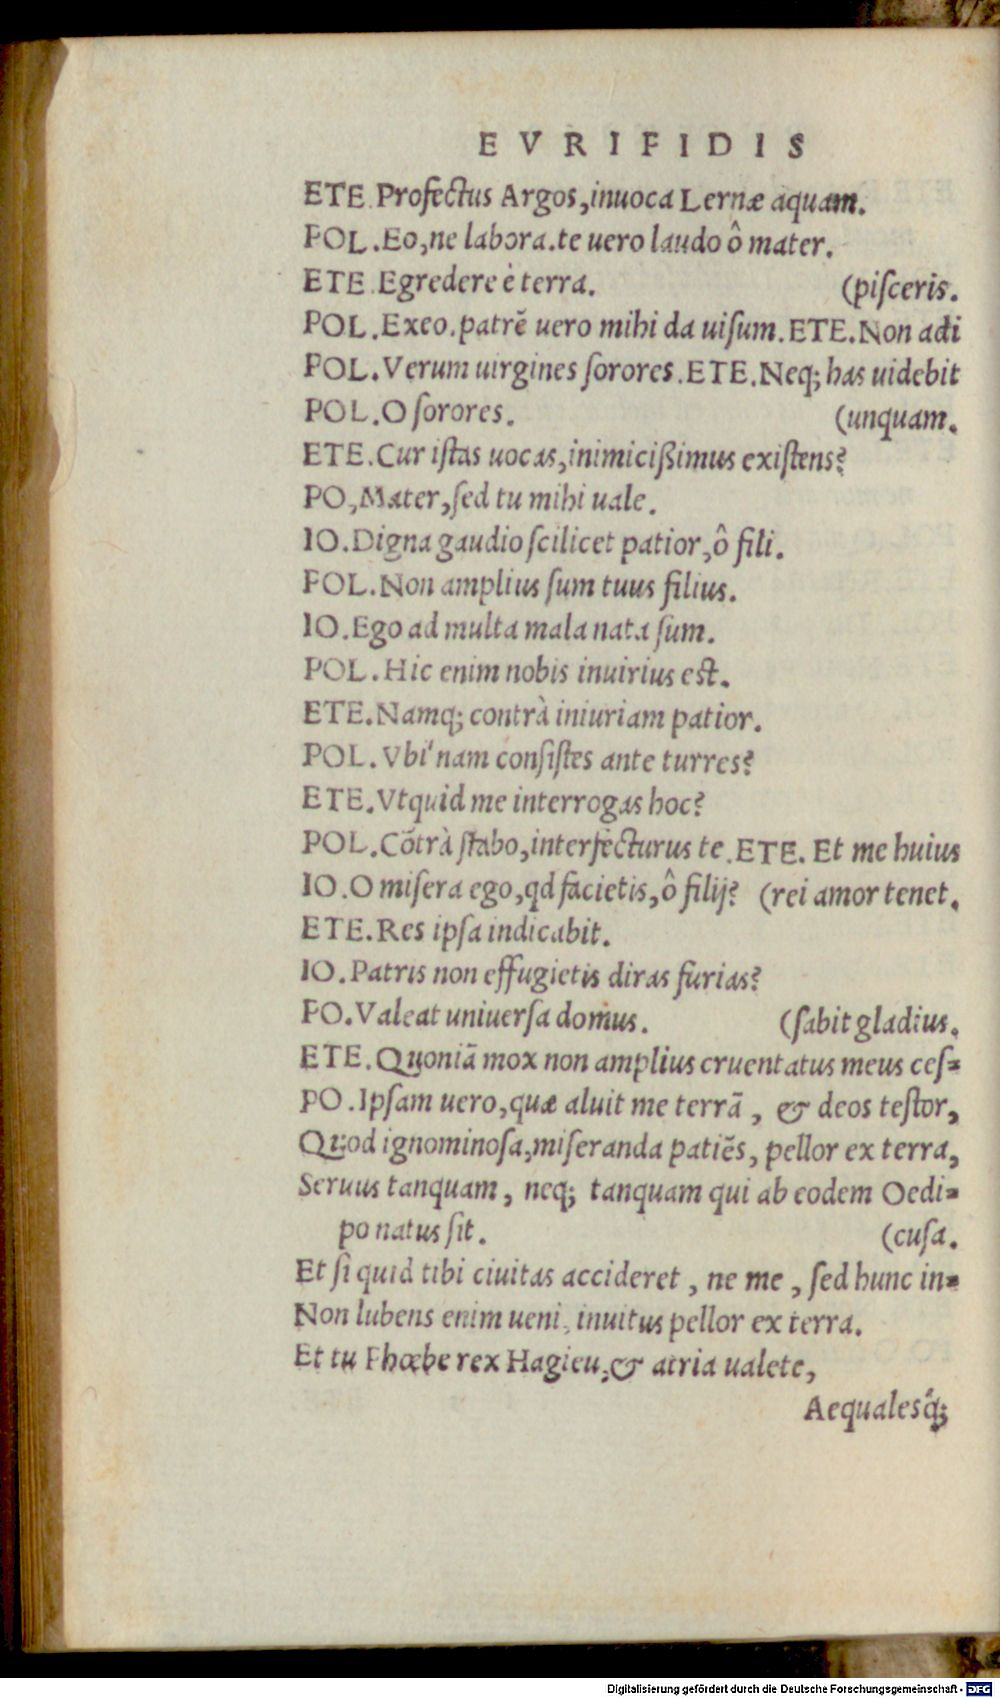 EVRIPIDIS
ETE. Profectus Argos, inuoca Lernæ aquam.
POL. Eo, ne labora. te uero laudo ô mater.
ETE. Egredere è terra. (pisceris.
POL. Exeo. patrē uero mihi da uisum. ETE. Non adi
POL. Verum uirgines sorores. ETE. Neq; has uidebit
POL. O sorores. (unquam.
ETE. Cur istas uocas, inimicißimus existens?
PO, Mater, sed tu mihi uale.
IO. Digna gaudio scilicet patior, ô fili.
POL. Non amplius sum tuus filius.
IO. Ego ad multa mala nata sum.
POL. Hic enim nobis iniurius est.
ETE. Namq; contrà iniuriam patior.
POL. Vbi nam consistes ante turres?
ETE. Vtquid me interrogas hoc?
POL. Cōtrà stabo, interfecturus te. ETE. Et me huius
IO. O misera ego, qd facietis, ô filij? (rei amor tenet.
ETE. Res ipsa indicabit.
IO. Patris non effugietis diras furias?
PO. Valeat uniuersa domus. (sabit gladius.
ETE. Quoniā mox non amplius cruentatus meus ces-
PO. Ipsam uero, quæ aluit me terrā, & deos testor,
Quod ignominosa, miseranda patiēs, pellor ex terra,
Seruus tanquam, neq; tanquam qui ab eodem Oedi-
po natus sit. (cusa.
Et si quid tibi ciuitas accideret, ne me, sed hunc in-
Non lubens enim ueni, inuitus pellor ex terra.
Et tu Phœbe rex Hagieu, & atria ualete,
Aequalesq́;
Digitalisierung gefördert durch die Deutsche Forschungsgemeinschaft - DFG